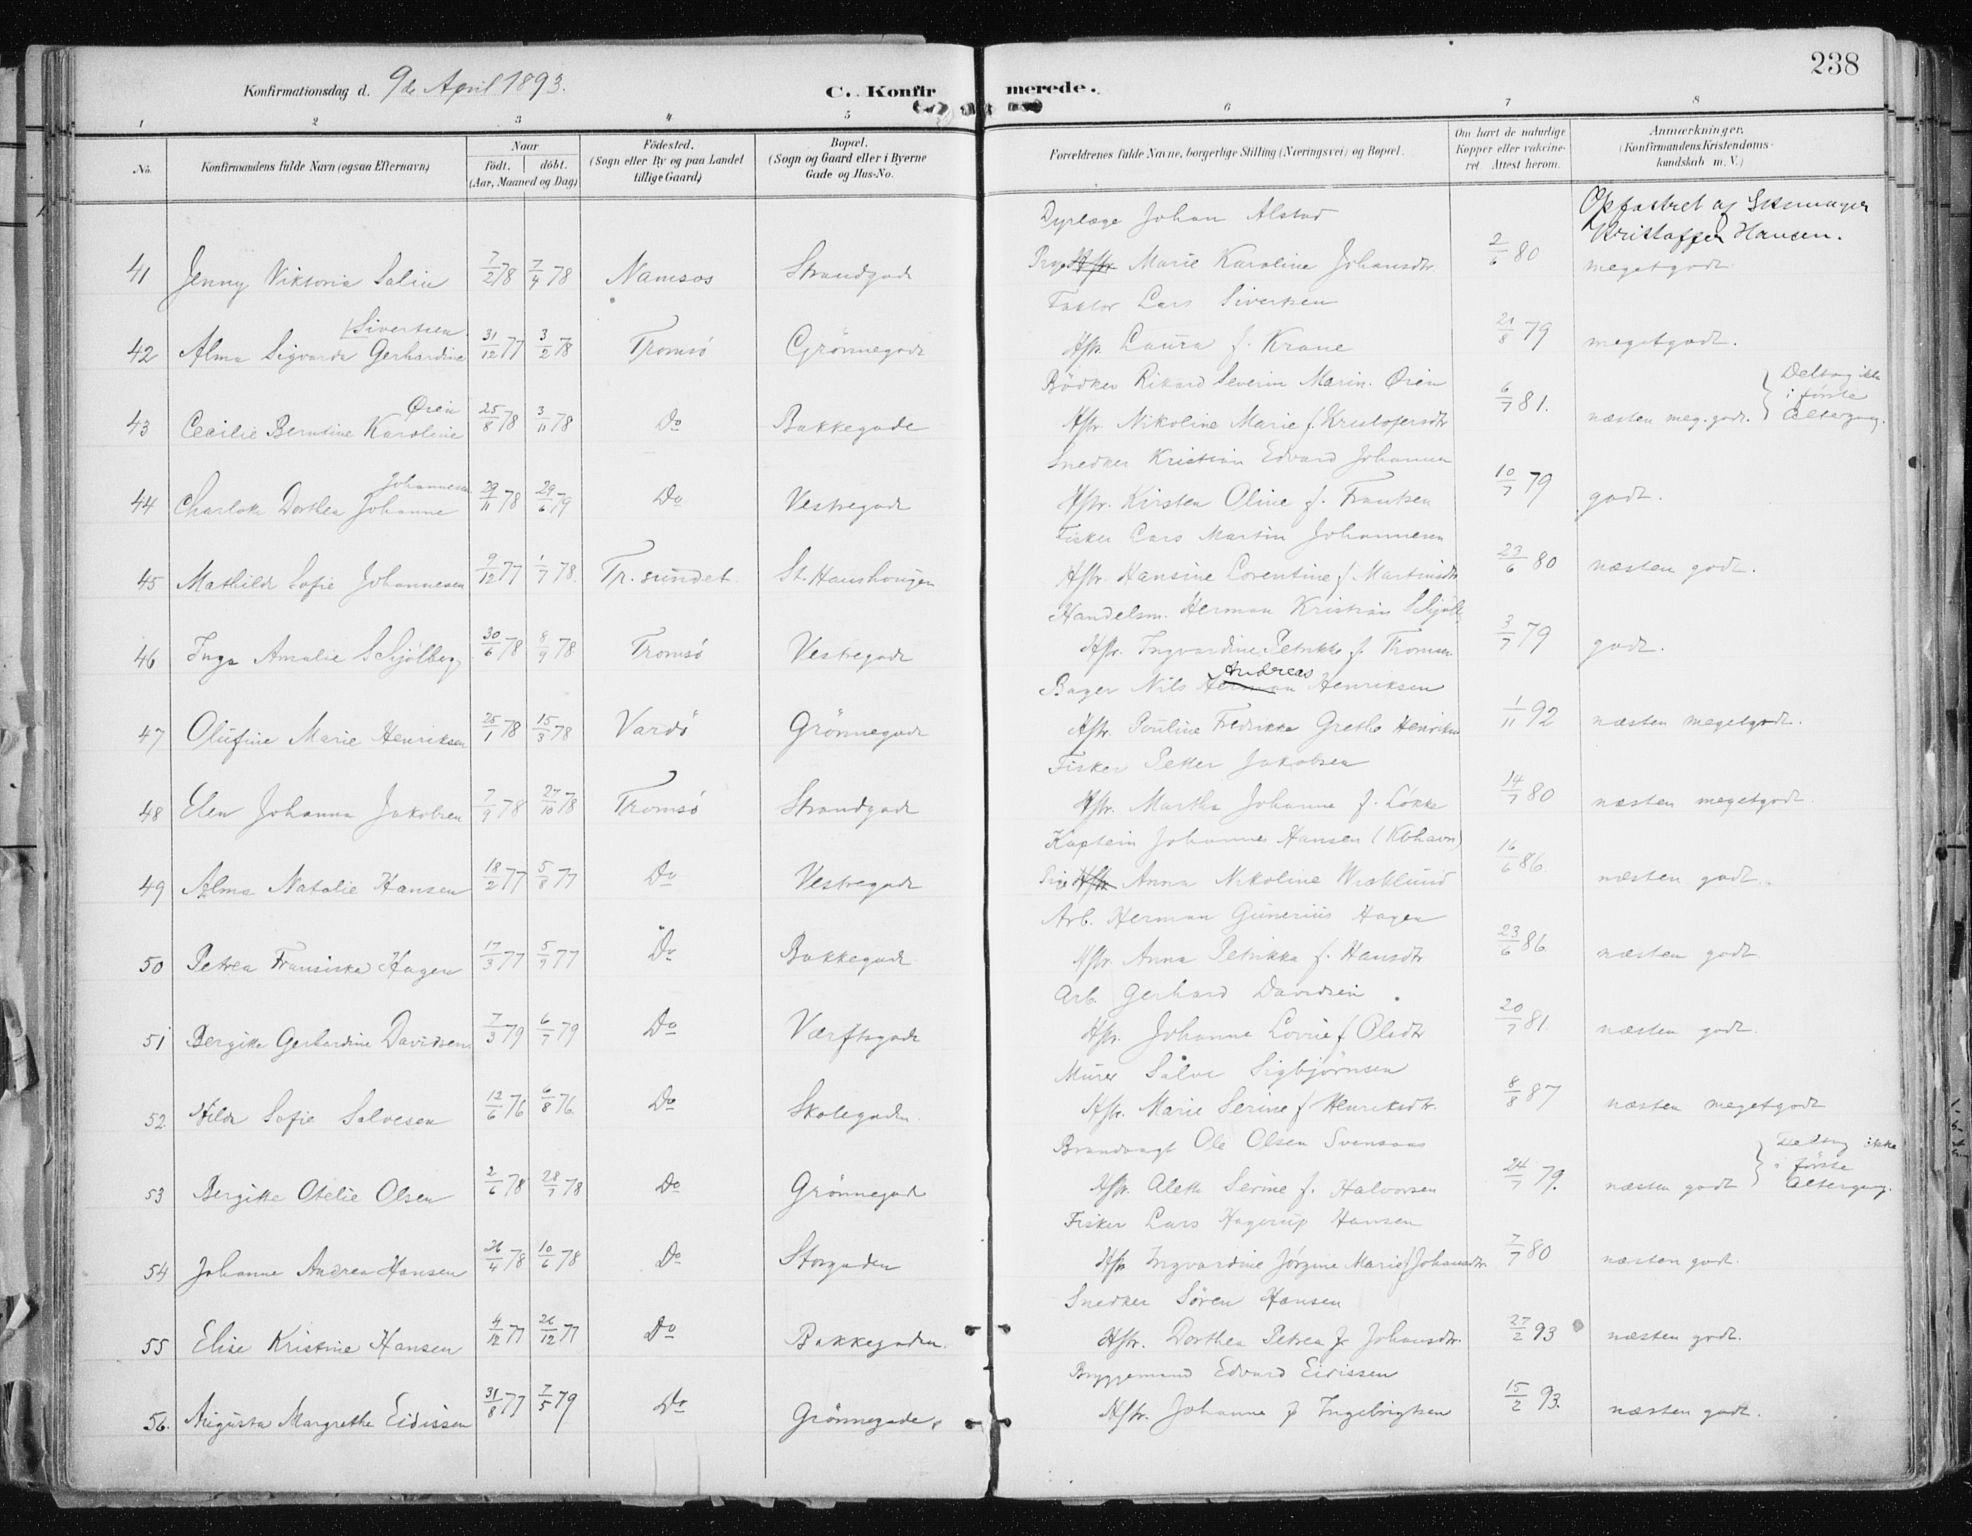 238
Konfirmationsdag d. 9de April 1893.
C. Konfirmerede.
1 2 3 4 5 6 7 8
No. Konfirmandens fulde Navn (ogsaa Efternavn) Naar Født. døbt. (Aar, Maaned og Dag) Fødested. (Sogn eller By og paa Landet tillige Gaard) Bopæl. (Sogn og Gaard eller i Byerne Gade og Hus-No. Forældrenes fulde Navne, borgerlige Stilling (Næringsvei) og Bopæl. Om havt de naturlige Kopper eller vakcineret. Attest herom. Anmærkninger. (Konfirmandens Kristendomskundskab m. V.)
Dyrlæge Johan Alstad Opfostret af Kristoffer Hansen.
41 Jenny Viktoria Salin 7/2 78 7/4 78 Namsos Strandgade Pige Hstr. Marie Karoline Johansdtr 2/6 80 megetgodt
Faktor Lars Sivertsen
42 Alma Sigvarda Gerhardine Sivertsen 31/12 77 3/2 78 Tromsö Grönnegade Hstr. Laura f. Krane 21/8 79 megetgodt.
Bödker Rikard Severin Marin. Ören
43 Cecilie Berntine Karoline Ören 25/8 78 3/11 78 Do Bakkegade Hstr. Nikoline Marie f Kristofersdtr 6/7 81. næsten meg. godt. Deltog ikke i förste Altergang.
Snedker Kristian Edvard Johannesen
44 Charlotte Dorthea Johanne Johannesen 29/11 78 29/6 79 Do Vestregade Hstr. Kirsten Oline f. Frantsen 10/7 79 godt.
Fisker Lars Martin Johannesen
45 Mathilde Sofie Johannesen 9/12 77 1/7 78. Tr. sundet. St. Hanshougen Hstr. Hansine Lorentine f Martinsdtr 23/6 80 næsten godt.
Handelsm. Herman Kristian Schjölb
46 Inga Amalie Schjölberg 30/6 78 8/9 78 Tromsö Vestregade Hstr. Ingvardine Petrikke f. Thomsen 3/7 79 godt.
Bager Nils Herman Andreas Henriksen
47 Olufine Marie Henriksen 25/1 78 15/3 78 Vardö Grönnegade Hstr. Pouline Fredrikke Grethe Henriksen 1/11 92 næsten megetgodt.
Fisker Petter Jakobsen
48 Elen Johanna Jakobsen 7/9 78 27/10 78 Tromsö Strandgade Hstr. Martha Johanne f. Lökke 14/7 80 næsten megetgodt.
Kaptein Johannes Hansen (Kbhavn)
49 Alma Natalie Hansen 18/2 77 5/8 77 Do Vestregade Pige Hstr. Anna Nikoline Wiklund 16/6 86. næsten godt.
Arb. Herman Gunerius Hagen
50 Petrea Fransiska Hagen 17/3 77 5/9 77 Do Bakkegade Hstr. Anna Petrikka f. Hansdtr 23/6 86 næsten godt
Arb. Gerhard Davidsen
51 Bergitte Gerhardine Davidsen 7/3 79 6/7 79 Do Værftsgade Hstr. Johanne Lovrie f Olsdtr 20/7 81 næsten godt.
Murer Salve Sigbjörnsen
52 Hilda Sofie Salvesen 12/6 76 6/8 76. Do Skolegaden Hstr. Marie Serine f Henriksdtr. 8/8 87 næsten megetgodt
Brandvagt Ole Olsen Svensaas
53 Bergitte Otelie Olsen 2/6 78 28/7 78 Do Grönnegade Hstr. Aleth Serine f. Halvorsen 24/7 79. næsten godt Deltog ikke i förste Altergang.
Fisker Lars Hagerup Hansen
54 Johanne Andrea Hansen 26/4 78 10/6 78 Do Storgaden Hstr Ingvardine Jörgine Marie f Johansdtr. 7/7 80 næsten godt.
Snedker Sören Hansen
55 Elise Kristine Hansen 4/12 77 26/12 77 Do Bakkegaden. Hstr. Dorthea Petrea f. Johansdtr. 27/2 93 næsten godt.
Bryggemand Edvard Eidissen
56. Augusta Margrethe Eidissen 31/8 77 7/5 79 Do Grönnegade. Hstr. Johanne f Ingebrigtsen 15/2 93. næsten godt.